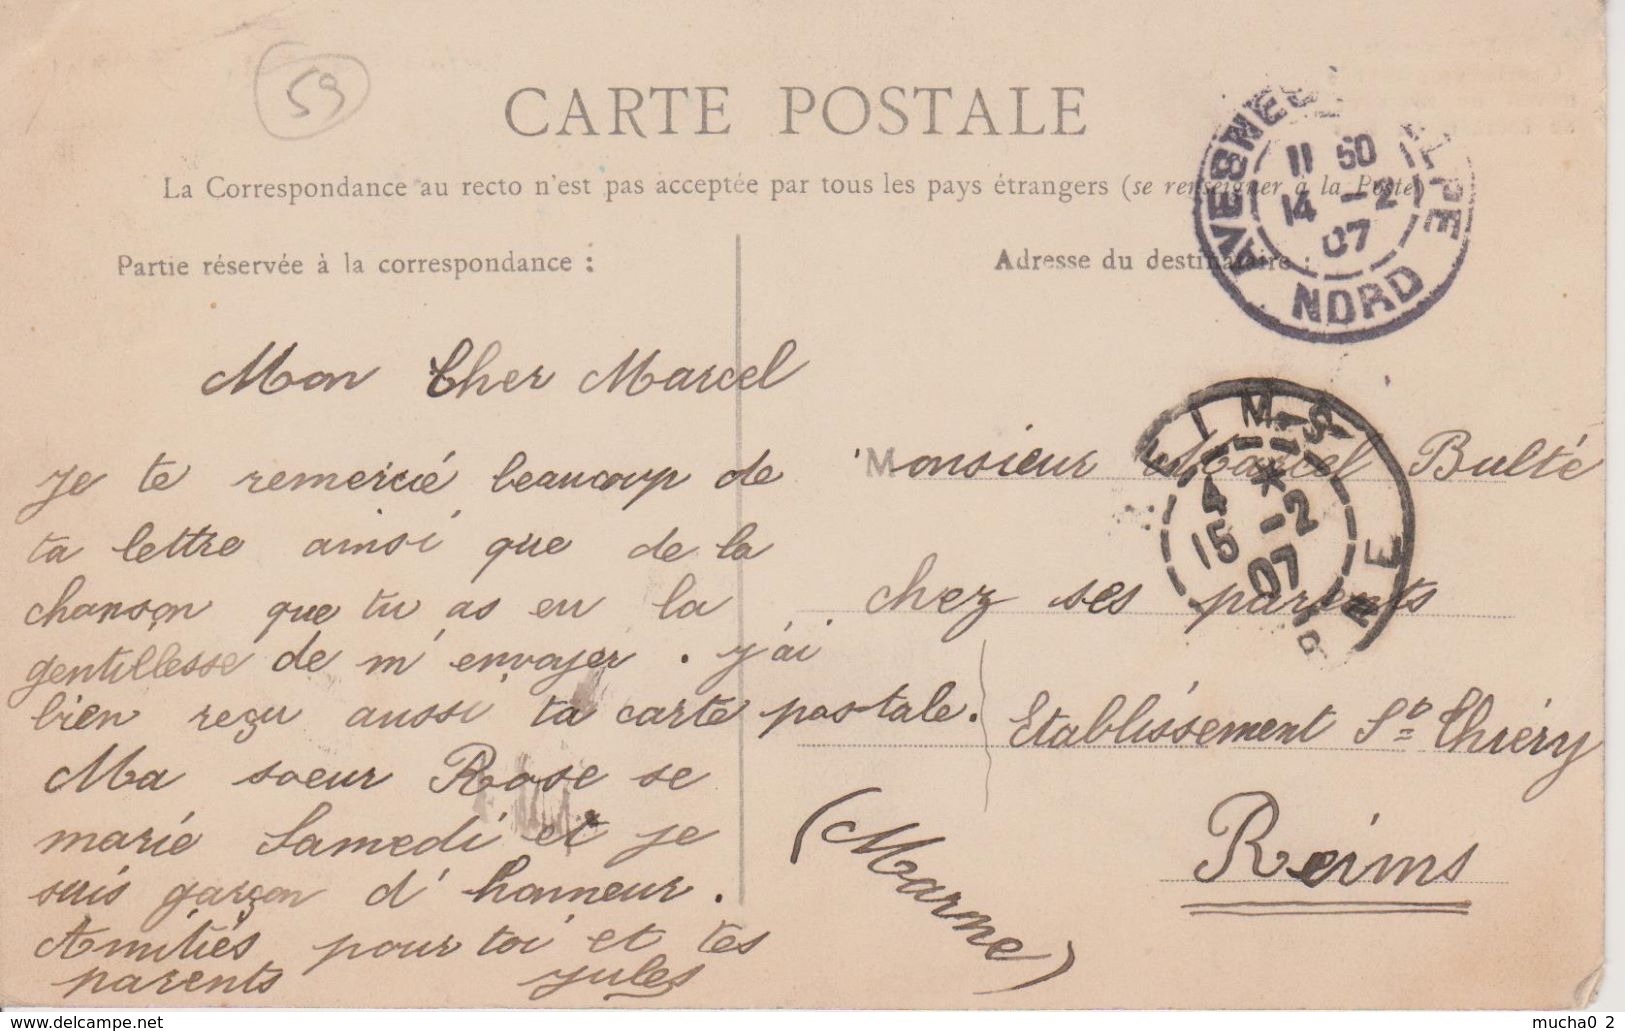 59
CARTE POSTALE
La Correspondance au recto n'est pas acceptée par tous les pays étrangers (se renseigner à la Poste)
Partie réservée à la correspondance :
Adresse du destinataire :
11 50
14 -2
07
NORD
Mon Cher Marcel
Je te remercié beaucoup de
ta lettre ainsi que de la
chanson que tu as eu la
gentillesse de m'envoyer . J'ai
bien reçu aussi ta carte postale.
Ma soeur Rose se
marie Samedi et je
suis garçon d'honneur.
Amitiés pour toi et tes
parents Jules
EIMS
4 *
15 -2
07
Monsieur Marcel Bulté
chez ses parents
Etablissement St Thiéry
Reims
(Marne)
mucha0_2